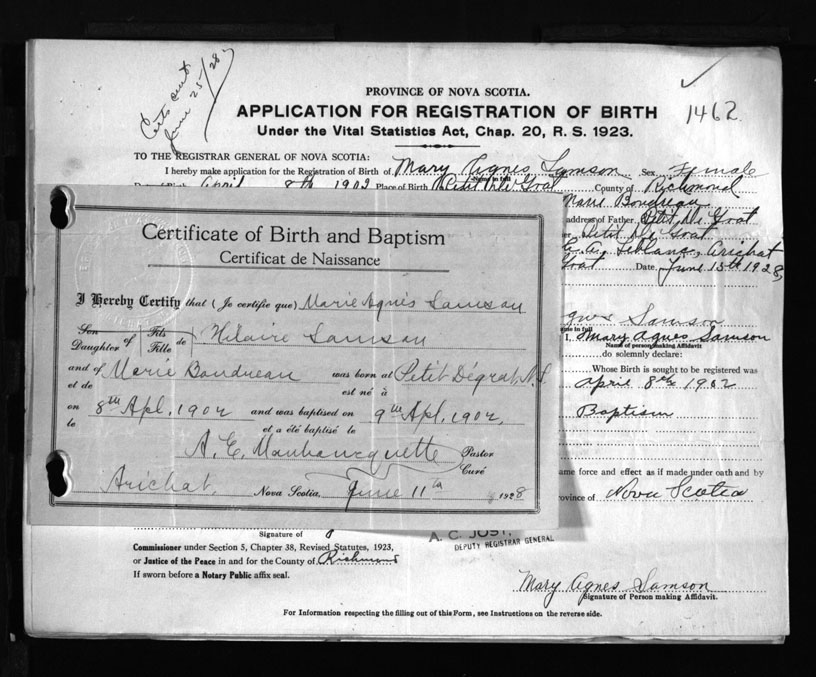 Certs sent
June 25/28
PROVINCE OF NOVA SCOTIA.
APPLICATION FOR REGISTRATION OF BIRTH
1462
Under the Vital Statistics Act, Chap. 20, R. S. 1923.
TO THE REGISTRAR GENERAL OF NOVA SCOTIA:
I hereby make application for the Registration of Birth of Mary Agnes Samson Sex Female
Name in full
April 8th 1902 Place of Birth Petit De Grat County of Richmond
Marie Boudreau
address of Father Petit De Grat
Petit De Grat
E. A. Leblanc, Arichat
Grat Date June 15th 1928,
Certificate of Birth and Baptism
Certificat de Naissance
I Hereby Certify that (Je certifie que) Marie Agnès Samson
Son Daughter of Fils Fille de Hilaire Samson
and of Marie Boudreau was born at Petit Dégrat N.S.
et de est né à
on 8th Apl, 1902 and was baptised on 9th Apl, 1902,
le et a été baptisé le
A. E. Monbourquette Pastor
Curé
Arichat, Nova Scotia, June 11th 1928
gnes Samson
me in full
I, Mary Agnes Samson
Name of person making Affidavit
do solemnly declare:
Whose Birth is sought to be registered was
April 8th 1902
Baptism
ame force and effect as if made under oath and by
ovince of Nova Scotia
Signature of
A. C. JOST,
DEPUTY REGISTRAR GENERAL
Commissioner under Section 5, Chapter 38, Revised Statutes, 1923,
or Justice of the Peace in and for the County of Richmond
If sworn before a Notary Public affix seal.
Mary Agnes Samson
Signature of Person making Affidavit.
For Information respecting the filling out of this Form, see Instructions on the reverse side.